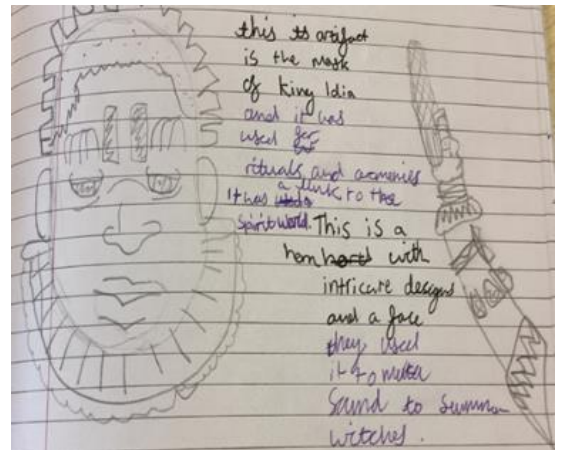 this is artifact
is the mask
of King Idia
and it was
used for
rituals and ceremonies
It has a link to the
Spirit World.
This is a
horn with
intricate designs
and a face
they used
it to make
Sound to Summon
witches.